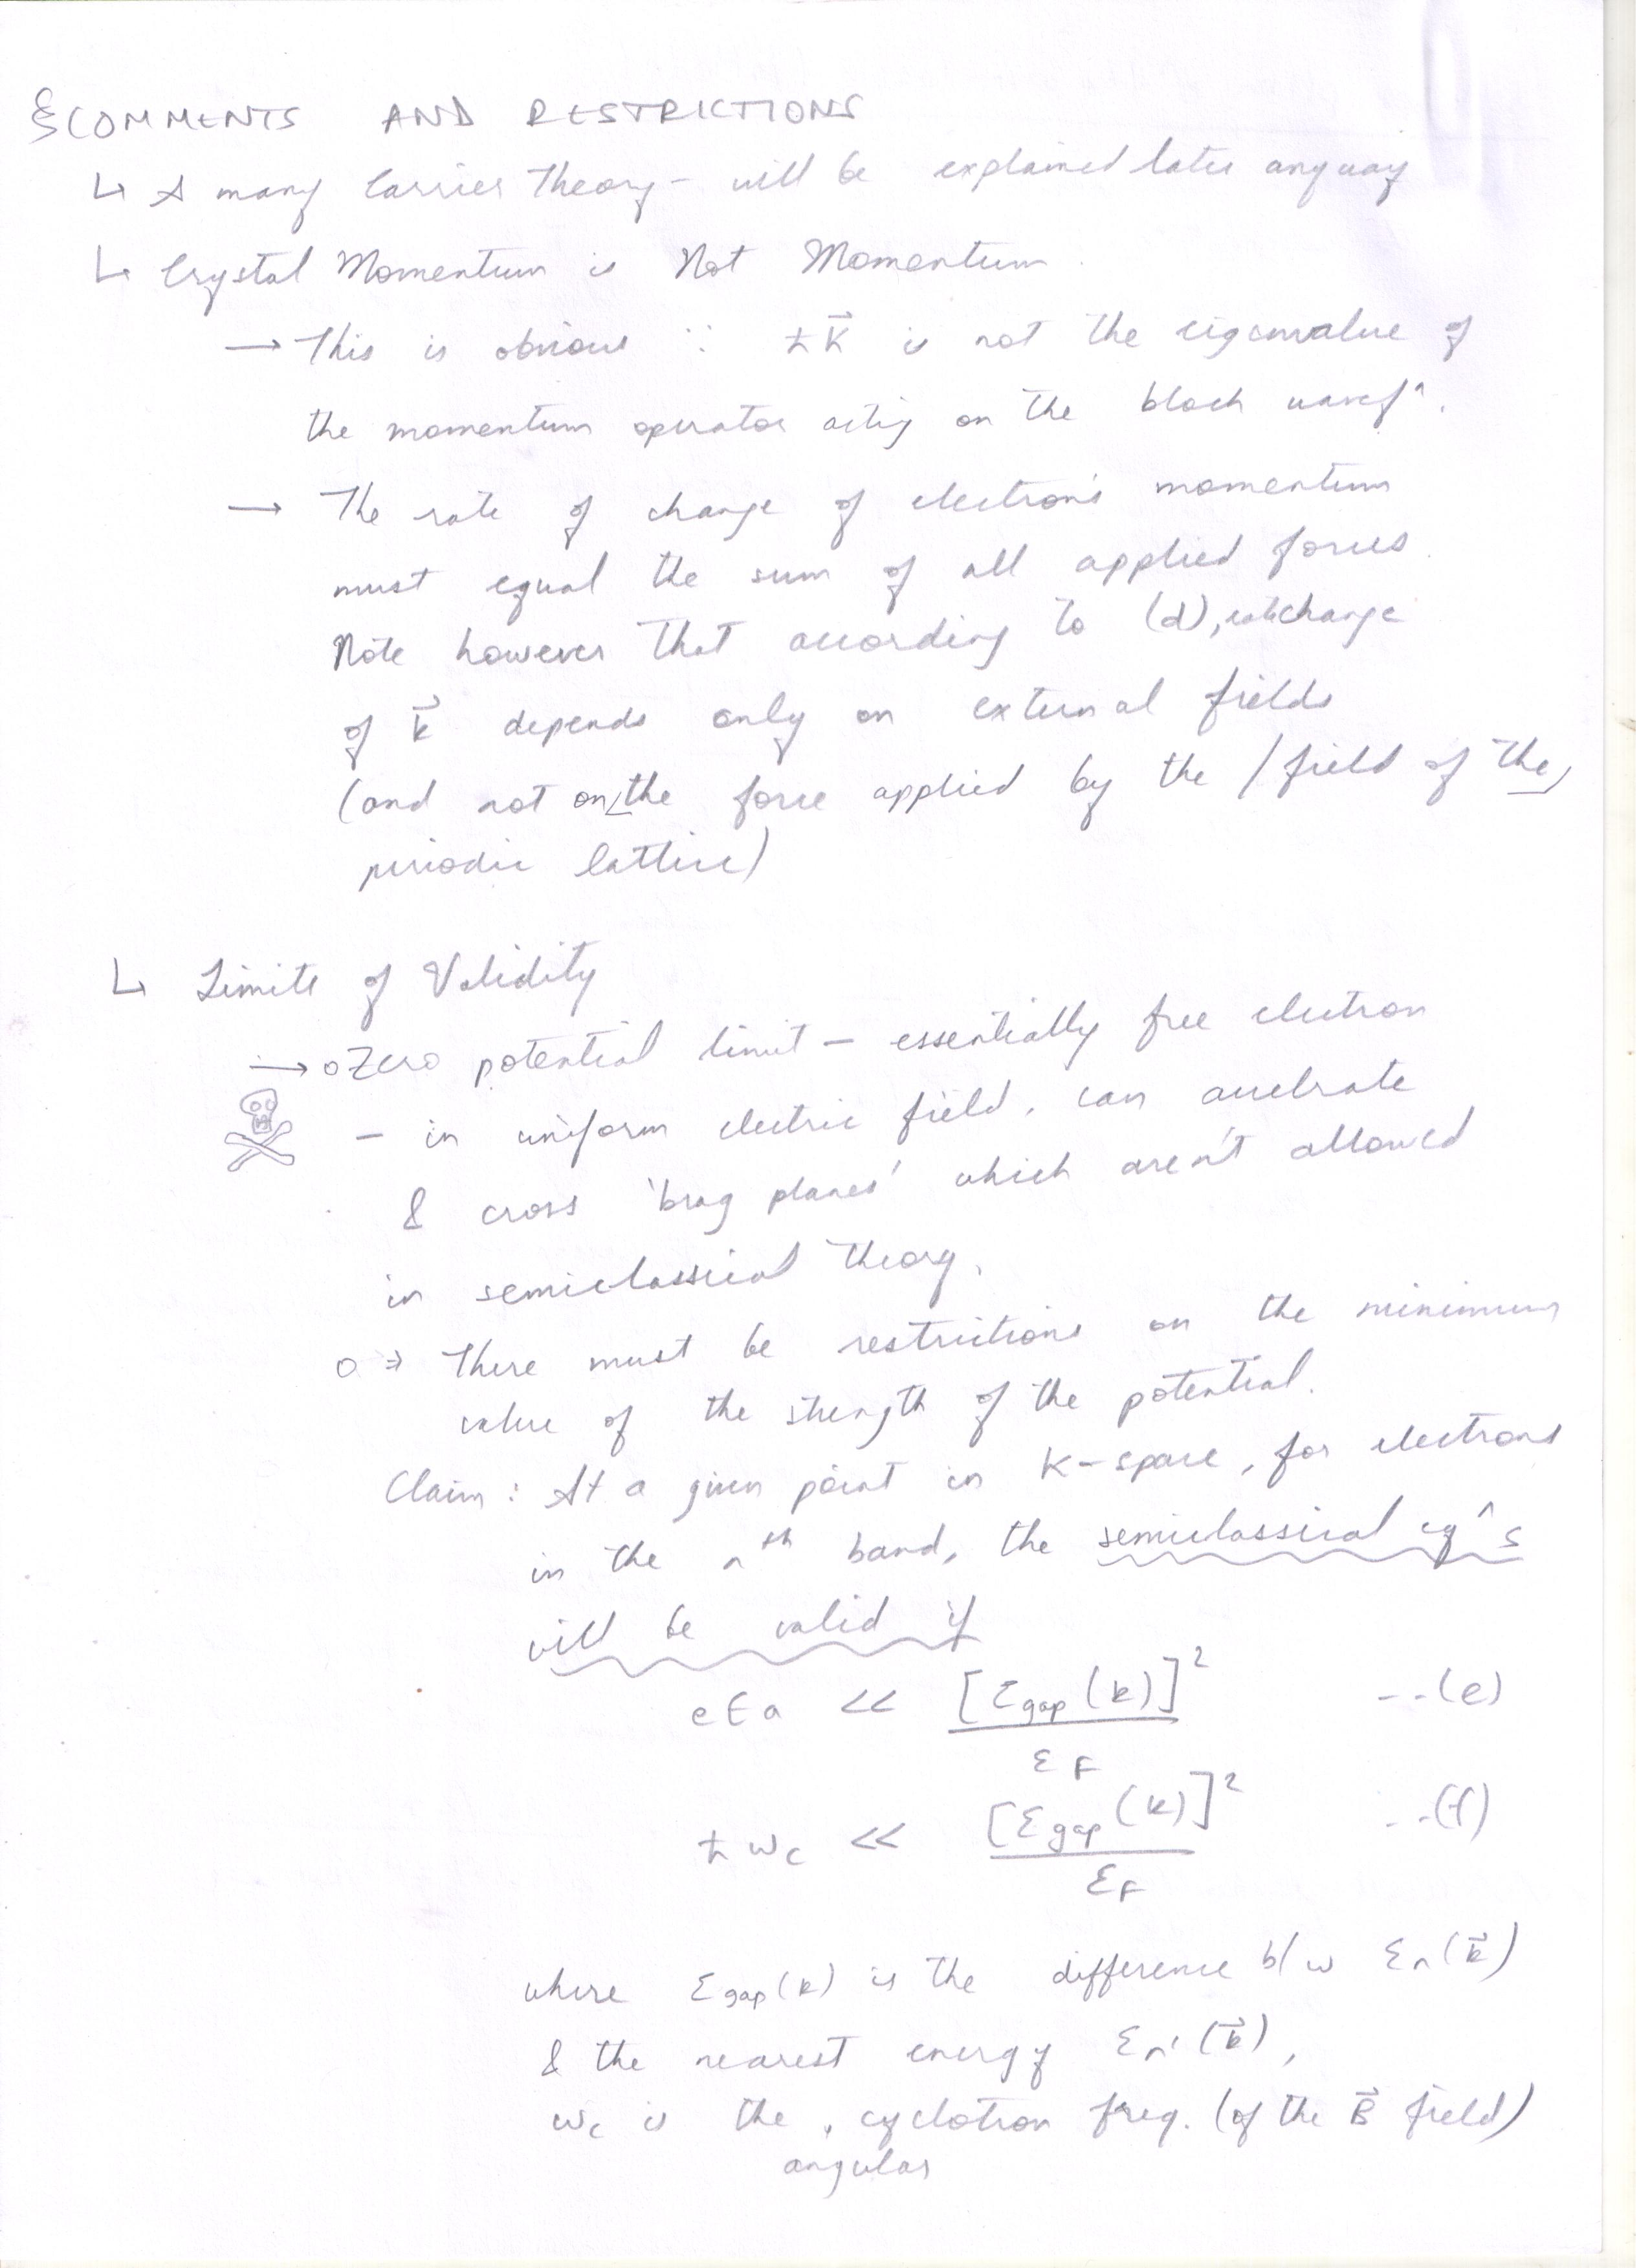 § COMMENTS AND RESTRICTIONS
↳ A many carrier Theory - will be explained later anyway
↳ Crystal Momentum is Not Momentum.
→ This is obvious ∵ ħk⃗ is not the eigenvalue of
the momentum operator acting on the bloch wavefⁿ.
→ The rate of change of electron's momentum
must equal the sum of all applied forces.
Note however that according to (d), rate change
of k⃗ depends only on external fields
(and not on the force applied by the / field of the
periodic lattice)
↳ Limits of Validity
→ o Zero potential limit – essentially free electron
– in uniform electric field, can accelrate
& cross 'brag planes' which aren't allowed
in semiclassical theory.
o ⇒ There must be restrictions on the minimum
value of the strength of the potential.
Claim : At a given point in k-space, for electrons
in the nᵗʰ band, the semiclassical eqⁿs
will be valid if
eEa << [ℰgap(k)]² / ℰF --(e)
ħωc << [ℰgap(k)]² / ℰF --(f)
where ℰgap(k) is the difference b/w ℰn(k⃗)
& the nearest energy ℰn'(k⃗),
ωc is the angular cyclotron freq. (of the B⃗ field)